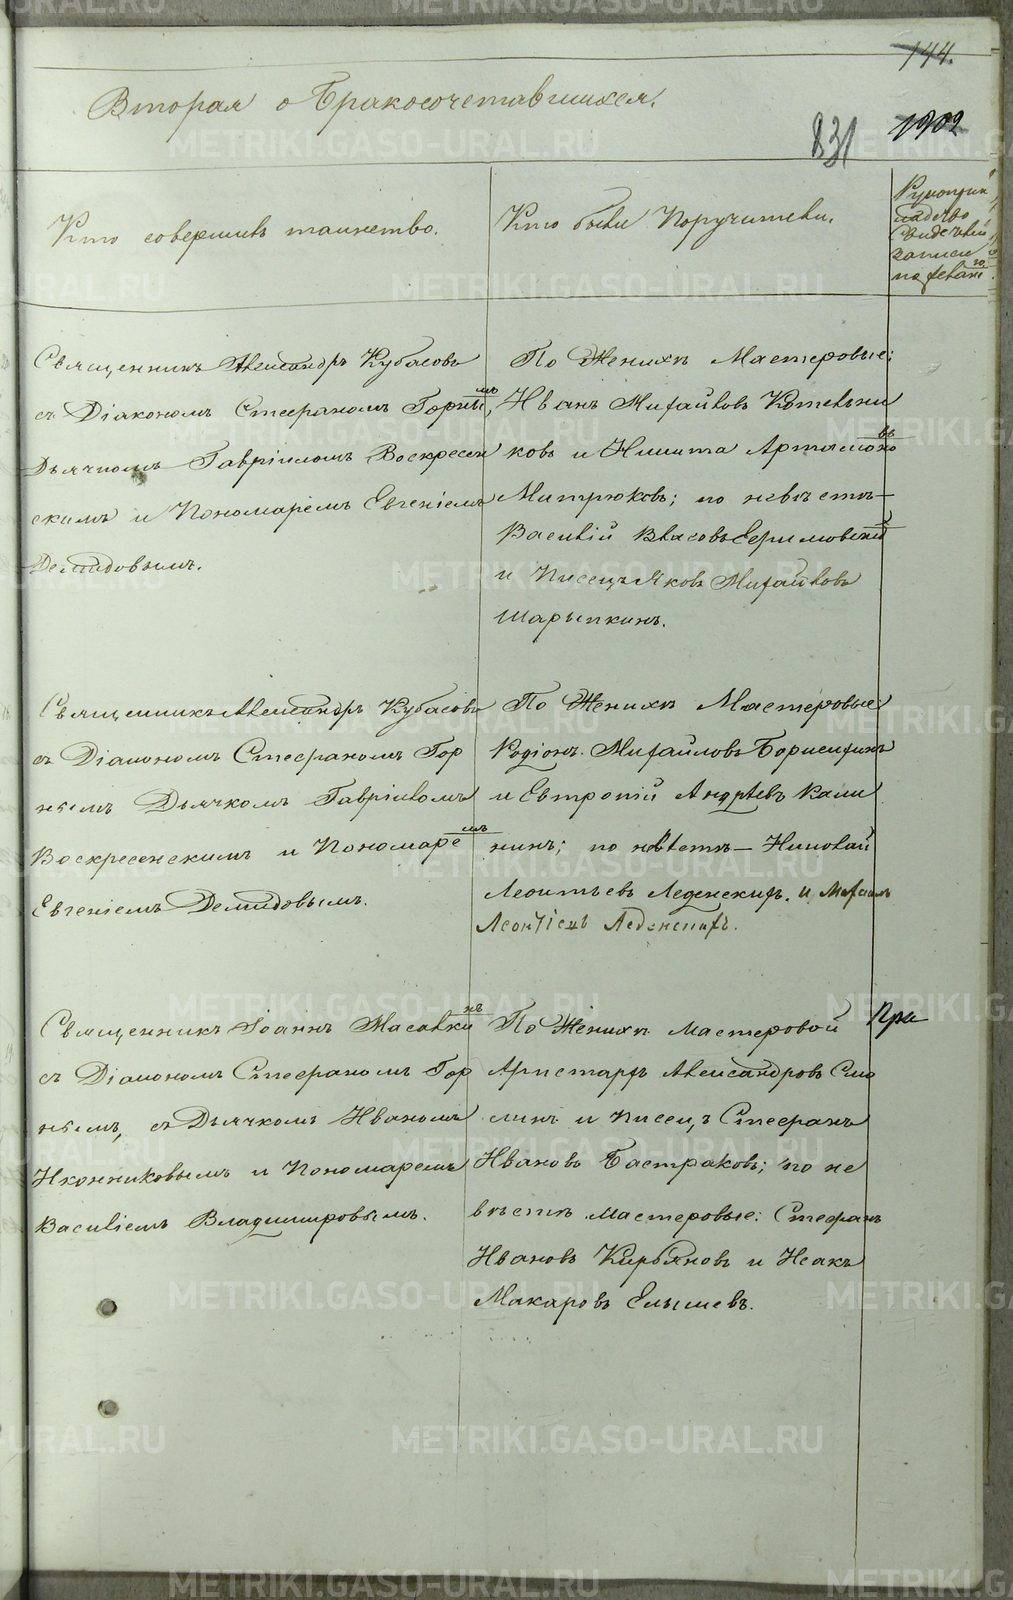 144.
Вторая о Бракосочетавшихся.
831
1902
Кто совершилъ таинство.
Кто были Поручители.
Рукоприк
ладство
Свидѣтелей
записи
по желанію
Священникъ Александръ Кубасовъ
съ Діакономъ Стефаномъ Горнымъ,
Дьячкомъ Гавріиломъ Воскресен
скимъ и Пономаремъ Евгеніемъ
Демидовымъ.
По Женихѣ Мастеровые:
Иванъ Михайловъ Котельни
ковъ и Никита Артамоновъ
Митрюковъ; по невѣстѣ —
Василій Власовъ
и Писецъ Яковъ Михайловъ
Шарыпкинъ.
Священникъ Александръ Кубасовъ
съ Діакономъ Стефаномъ Гор
нымъ Дьячкомъ Гавріиломъ
Воскресенскимъ и Пономаремъ
Евгеніемъ Демидовымъ.
По Женихѣ Мастеровые
Родіонъ Михайловъ Борисихинъ
и Евтропій Андреевъ Кали
нинъ; по невѣстѣ — Николай
Леонтьевъ Леденскихъ. и Михаилъ
Леонтіевъ Леденскихъ.
Священникъ Іоаннъ Масалкинъ
съ Діакономъ Стефаномъ Гор
нымъ, съ Дьячкомъ Иваномъ
Иконниковымъ и Пономаремъ
Василіемъ Владимировымъ.
По Женихѣ мастеровой
Аристархъ Александровъ Смо
линъ и Писецъ Стефанъ
Ивановъ Бастраковъ; по не
вѣстѣ мастеровые: Стефанъ
Ивановъ Кирьяновъ и Исакъ
Макаровъ
METRIKI.GASO-URAL.RU